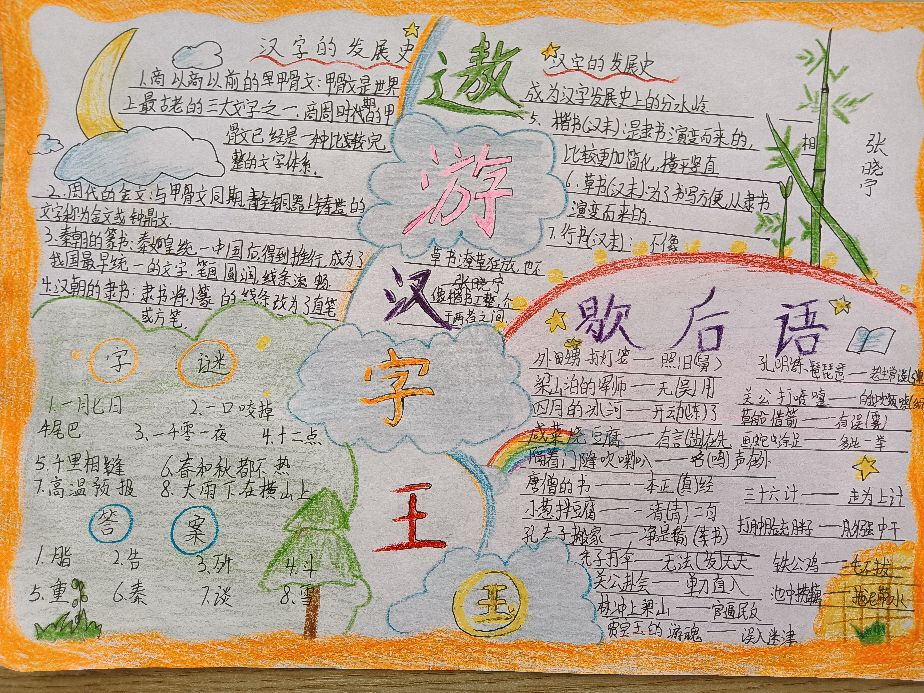 遨
游
汉
字
王
王
国
汉字的发展史
1.商以商以前的早甲骨文:甲骨文是世界
上最古老的三大文字之一,商周时代的甲
骨文已经是一种比较完
整的文字体系.
2.周代的金文:与甲骨文同期,青铜器上铸造的
文字称为金文或钟鼎文.
3.秦朝的篆书:秦始皇统一中国后得到推行,成为了
我国最早统一的文字,笔画圆润,线条流畅
4.汉朝的隶书:隶书将小篆的线条改为了直笔
或方笔.
汉字的发展史
成为汉字发展史上的分水岭
5、楷书(汉末):是隶书演变而来的,相
比较更加简化,横平竖直
6.草书(汉末):为了书写方便,从隶书
演变而来的.
7.行书(汉末):不像
草书凌草狂放,也不
张晓宁
像楷书工整,介
于两者之间.
张晓宁
字谜
1.一月七日 2.一口咬掉
牛尾巴 3、一千零一夜 4.十二点
5.千里相逢 6.春和秋都不热
7.高温预报 8.大雨下在横山上
答案
1.脂 2.告 3.列 4.斗
5.重 6.秦 7.谈 8.雪
歇后语
外甥打灯笼——照旧(舅)
梁山泊的军师——无(吴)用
四月的冰河——开动(冻)了
咸菜烧豆腐——有言(盐)在先
隔着门缝吹喇叭——名(鸣)声在外
唐僧的书——一本正(真)经
小葱拌豆腐——一清(青)二白
孔夫子搬家——净是输(书)
秃子打伞——无法(发)无天
关公赴会——单刀直入
林冲上梁山——官逼民反
贾宝玉的游魂——误入迷津
关公打喷嚏——
草船借箭——
画蛇添足——多此一举
三十六计——走为上计
打肿脸充胖子——外强中干
铁公鸡——